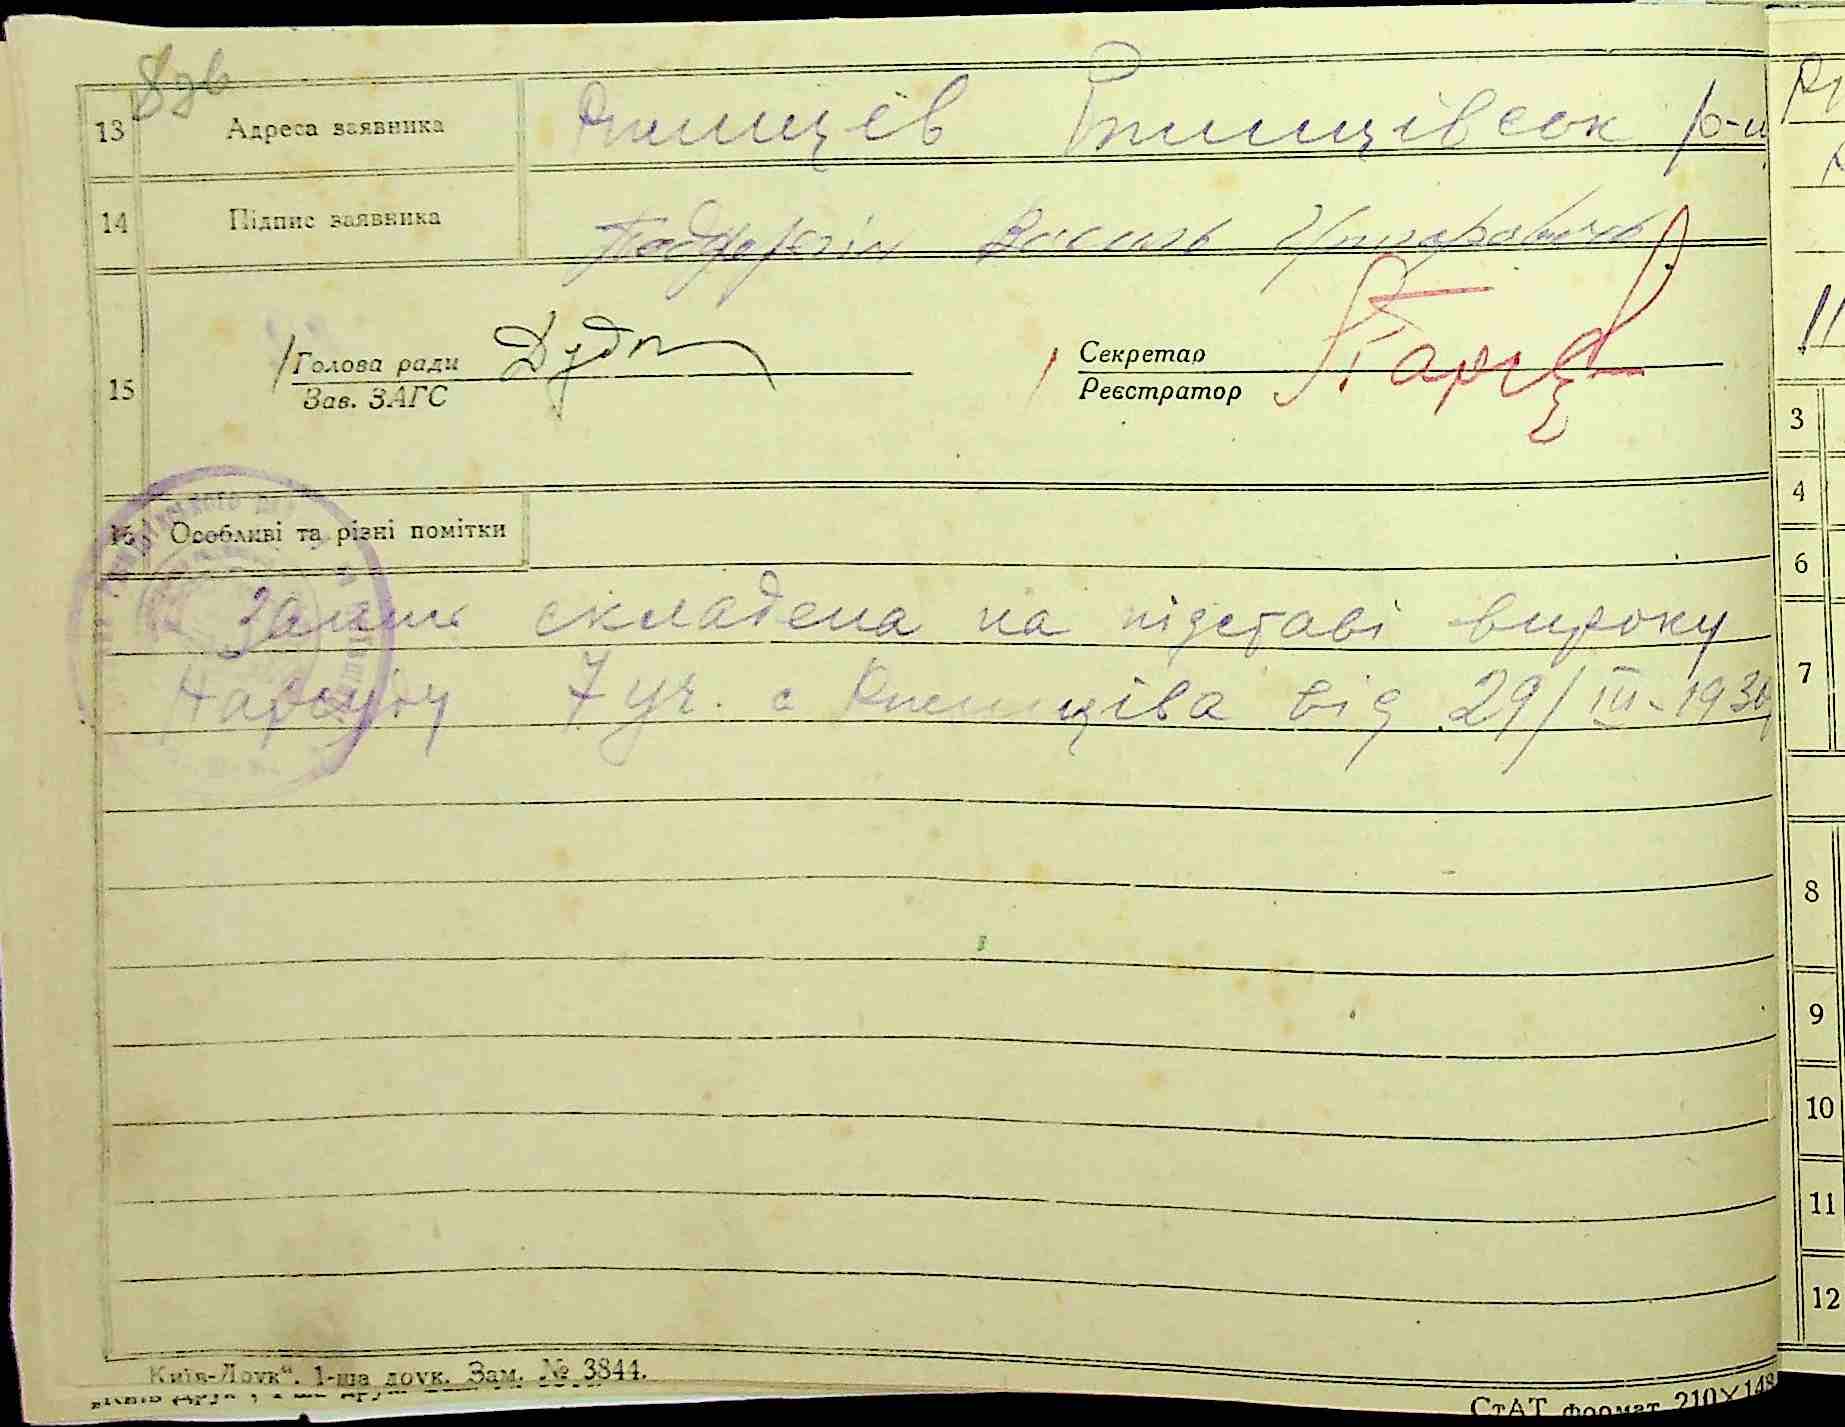 8зв
13 Адреса заявника Ржищев Ржищівськ р-н
14 Підпис заявника Василь
15 Голова ради Секретар
Зав. ЗАГС Реєстратор
16 Особливі та різні помітки
Запись складена на підставі вироку
Нарсуду 7 уч. с Ржищіва від 29/III-1936
„Київ-Друк“. 1-ша друк. Зам. № 3844.
СтАТ формат 210×148
3
4
6
7
8
9
10
11
12